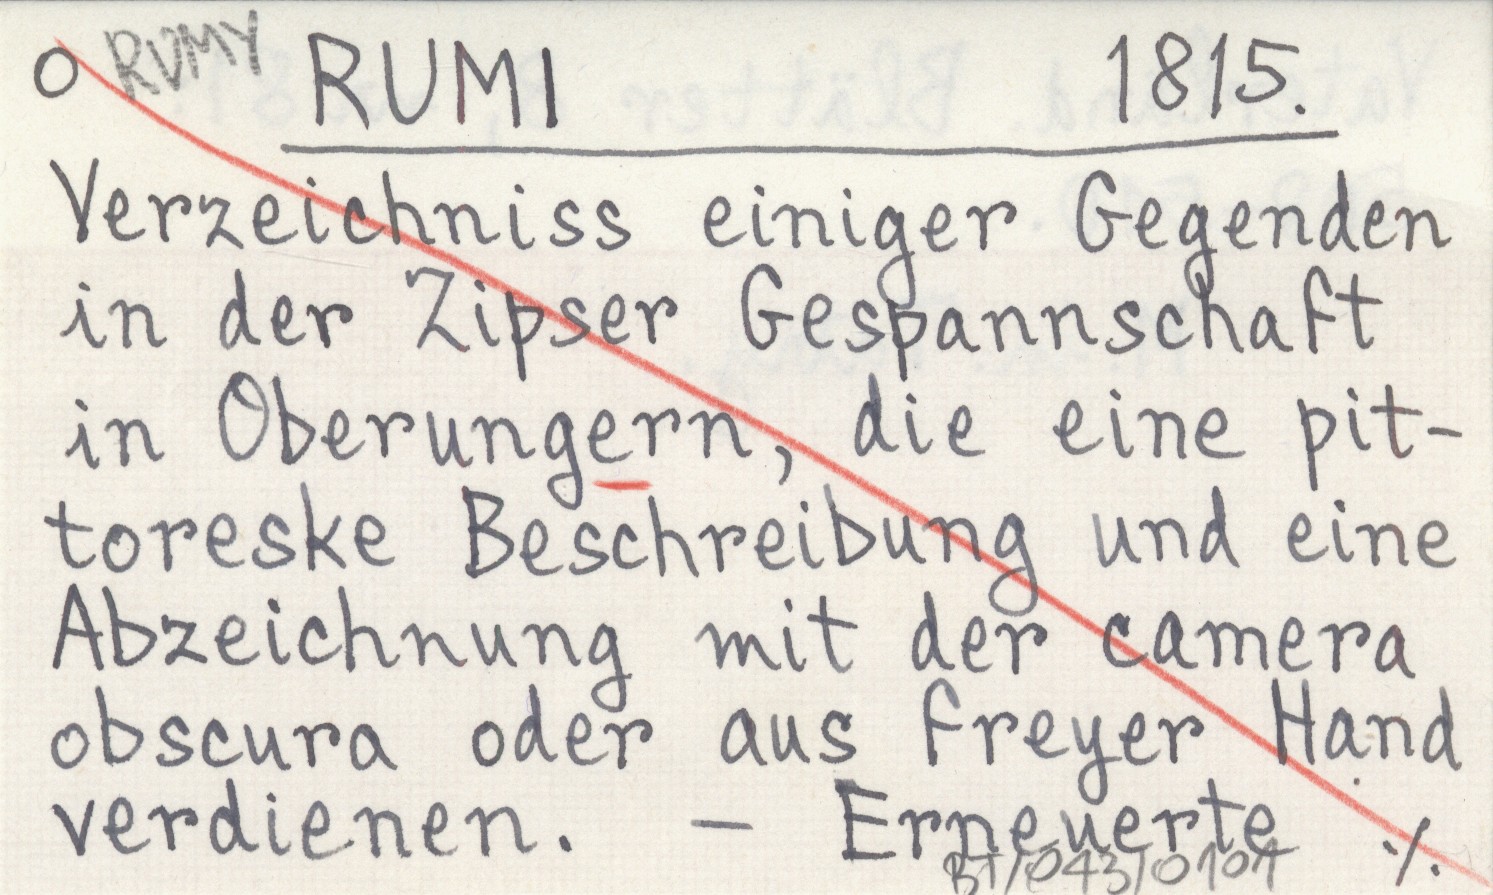 O RUMY RUMI 1815.
Verzeichniss einiger Gegenden
in der Zipser Gespannschaft
in Oberungern, die eine pit-
toreske Beschreibung und eine
Abzeichnung mit der camera
obscura oder aus freyer Hand
verdienen. — Erneuerte ./.
BT/043/0101